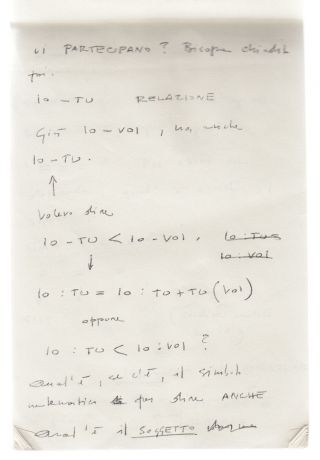 VI PARTECIPANO ? Bisogna chiederlo
poi.
IO – TU RELAZIONE
Già IO – VOI , ma anche
IO – TU .
↑
Volevo dire
IO – TU < IO – VOI .
↓ IO : VOI
IO : TU = IO : TU + TU (VOI)
oppure
IO : TU < IO : VOI ?
Qual'è , se c'è , il simbolo
matematico per dire ANCHE
Qual'è il SOGGETTO